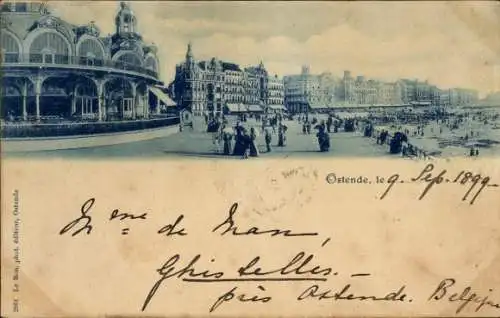 Ostende, le 9 Sep. 1899.
Mme de Man,
Ghistelles -
près Ostende. Belgique
2862 Le Bon, phot. éditeur, Ostende